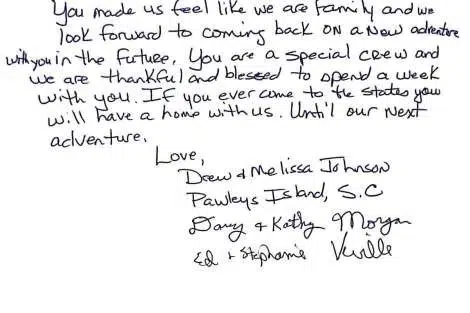 You made us feel like we are family and we
look forward to coming back on a new adventure
with you in the future. You are a special crew and
we are thankful and blessed to spend a week
with you. If you ever come to the states you
will have a home with us. Until our next
adventure.
Love,
Drew & Melissa Johnson
Pawleys Island, S.C
& Kathy Morgan
Ed + Stephanie